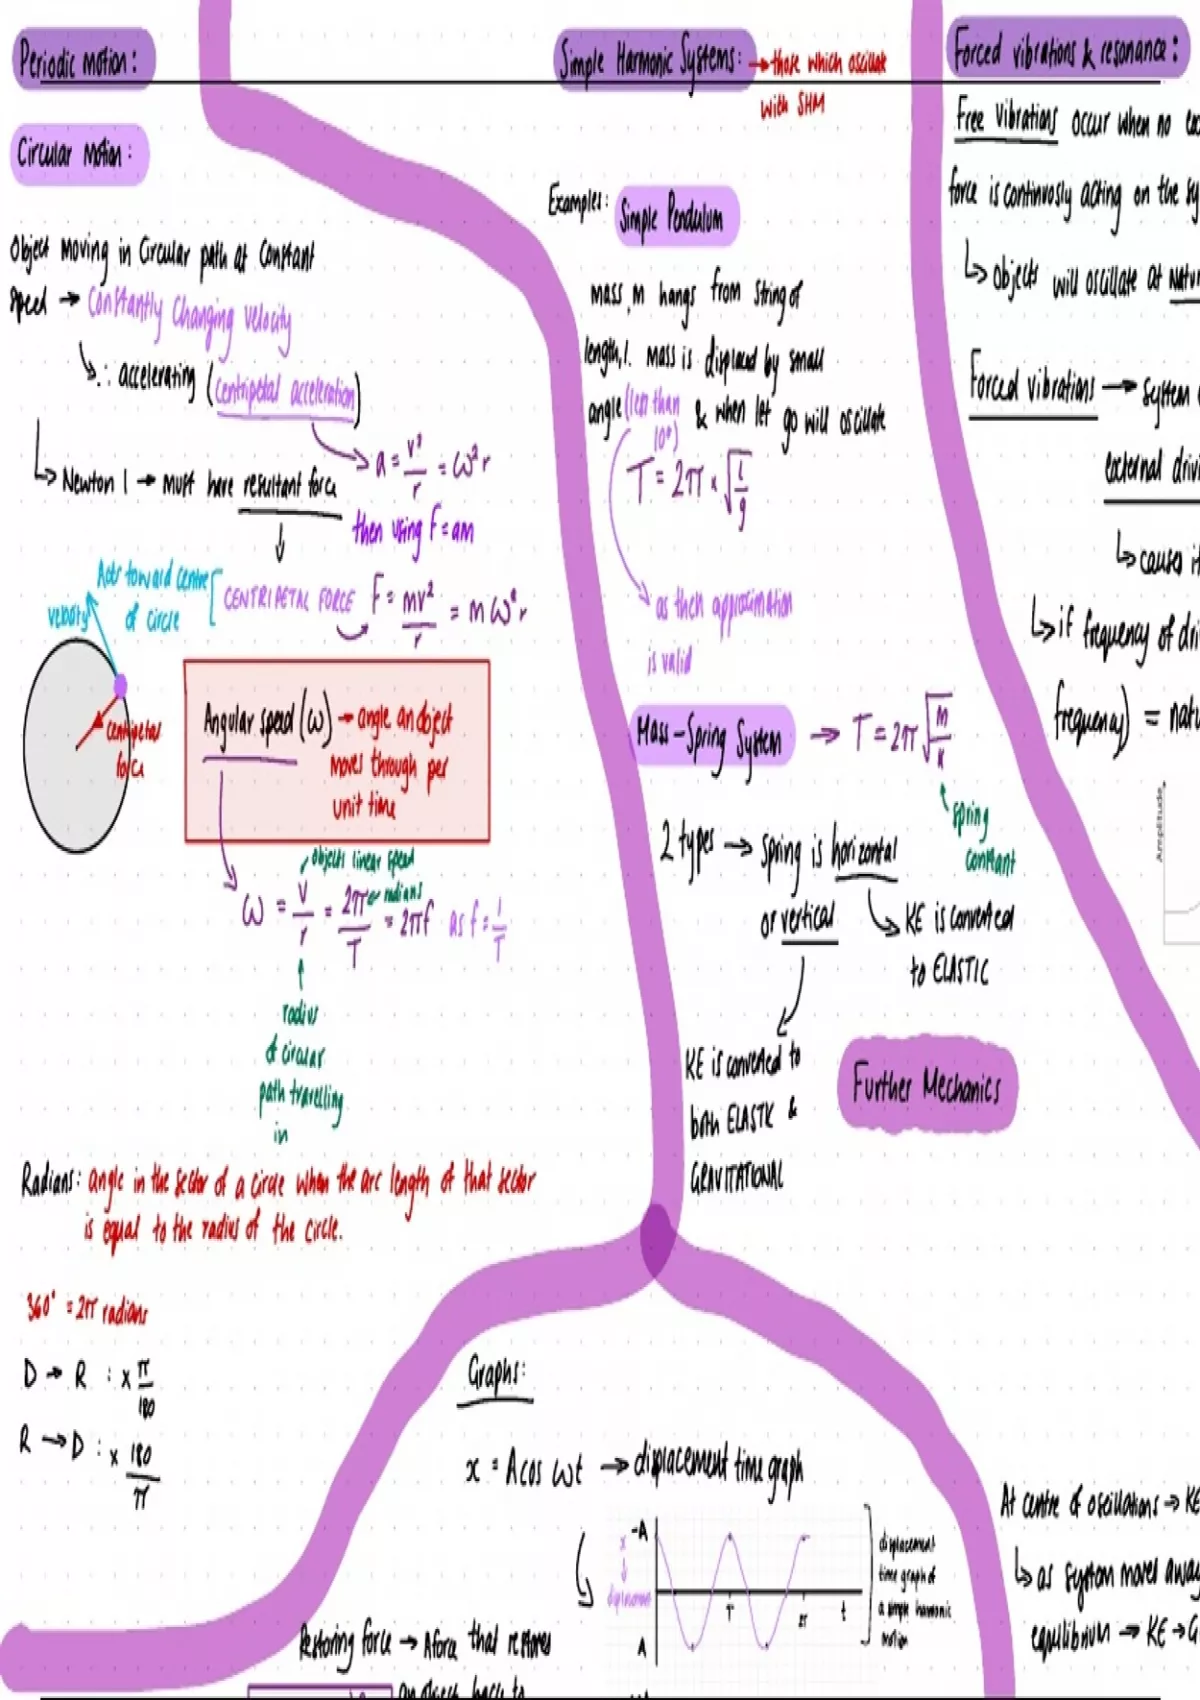 Periodic motion:
Circular motion:
Object moving in Circular path at Constant
speed → Constantly Changing velocity
∴ accelerating (centripetal acceleration)
a = v²/r = ω²r
↳ Newton 1 → must have resultant force
then using F=am
Acts toward centre
of circle
CENTRIPETAL FORCE F = mv²/r = mω²r
velocity
centripetal
force
Angular speed (ω) → angle an object
moves through per
unit time
objects linear speed
ω = v/r = 2π/T = 2πf as f = 1/T
radians
radius
of circular
path travelling
in
Radians: angle in the sector of a circle when the arc length of that sector
is equal to the radius of the circle.
360° = 2π radians
D → R : × π/180
R → D : × 180/π
Simple Harmonic Systems: → those which oscillate
with SHM
Examples: Simple Pendulum
mass, m hangs from string of
length, l. mass is displaced by small
angle (less than
10°) & when let go will oscillate
T = 2π × √l/g
as then approximation
is valid
Mass-Spring System → T = 2π√m/k
spring
constant
2 types → spring is horizontal
or vertical
KE is converted
to ELASTIC
KE is converted to
both ELASTIC &
GRAVITATIONAL
Further Mechanics
Forced vibrations & resonance:
Free vibrations occur when no
force is continuosly acting on the
↳ objects will oscillate at
Forced vibrations → system
external
↳ causes
↳ if frequency of
frequency) =
Amplitude
Graphs:
x = A cos ωt → displacement time graph
-A
x
displacement
A
T
2T
t
displacement
time graph of
a simple harmonic
motion
Restoring force → A force that restores
an object back to
At centre of oscillations → KE
↳ as system moves away
equilibrium → KE →